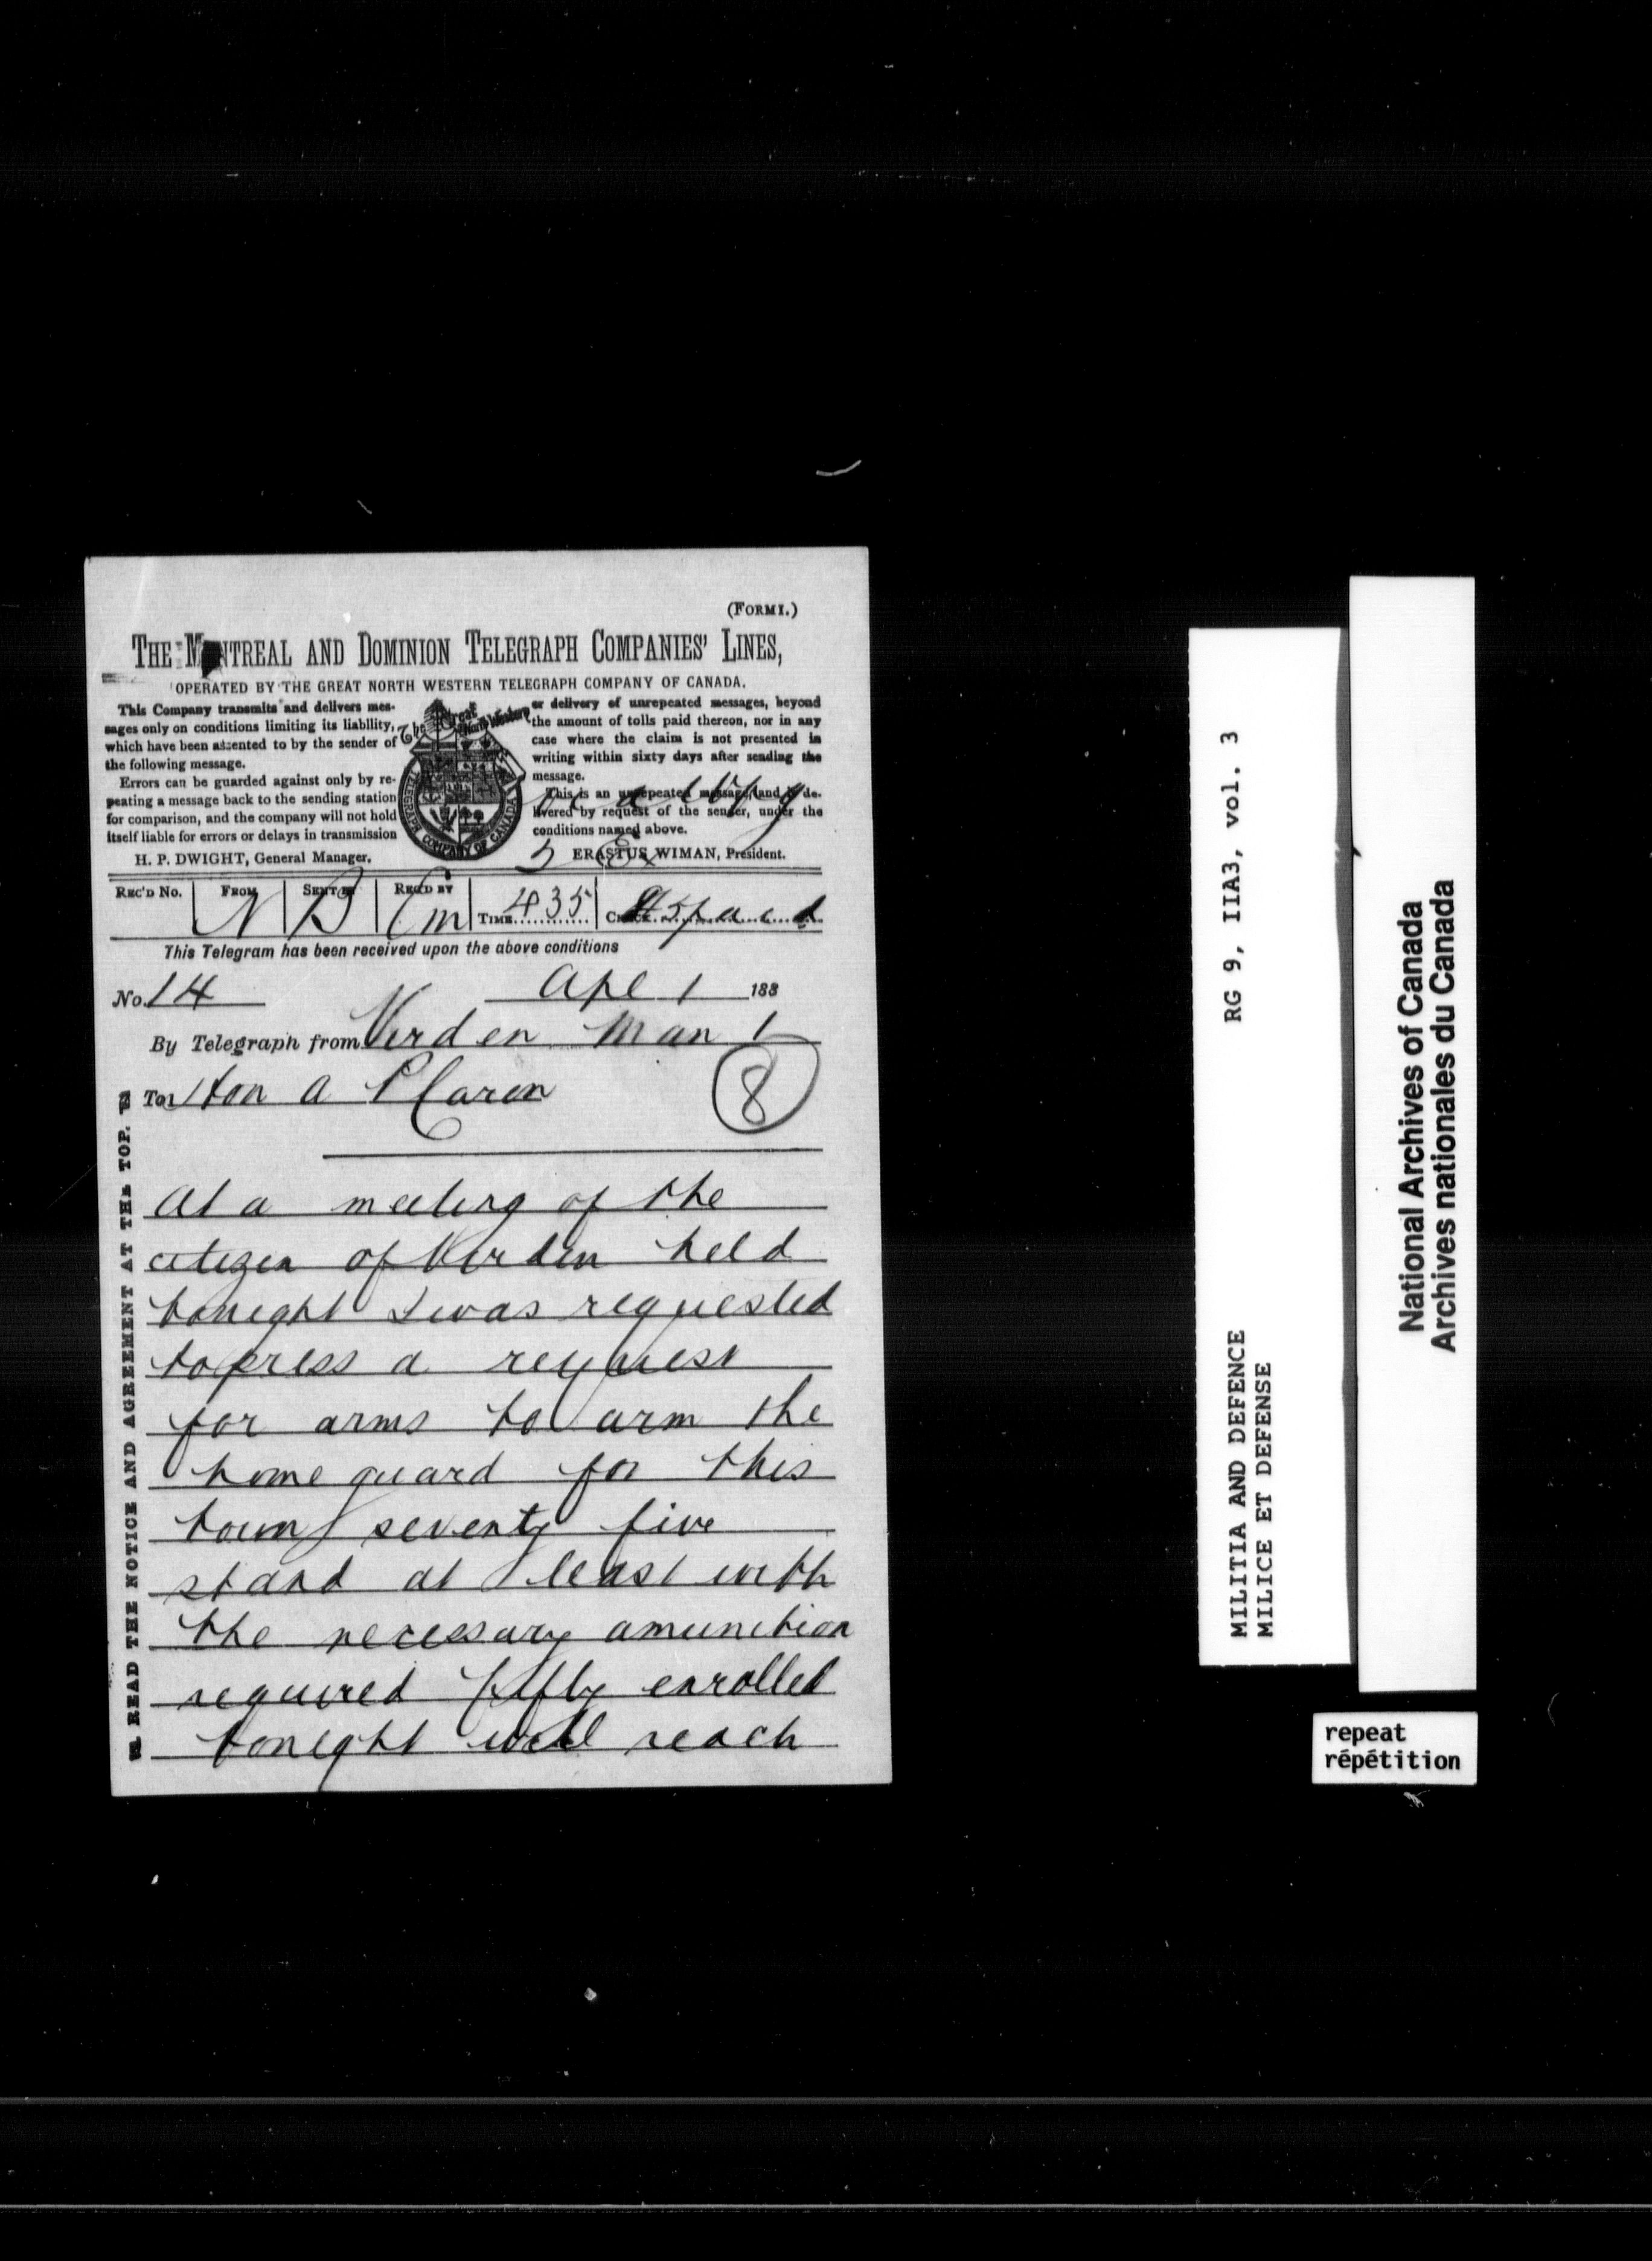 (FORM 1.)
THE MONTREAL AND DOMINION TELEGRAPH COMPANIES' LINES,
OPERATED BY THE GREAT NORTH WESTERN TELEGRAPH COMPANY OF CANADA.
This Company transmits and delivers mes-
sages only on conditions limiting its liability,
which have been assented to by the sender of
the following message.
Errors can be guarded against only by re-
peating a message back to the sending station
for comparison, and the company will not hold
itself liable for errors or delays in transmission
H. P. DWIGHT, General Manager.
The Great North Western
TELEGRAPH COMPANY OF CANADA
or delivery of unrepeated messages, beyond
the amount of tolls paid thereon, nor in any
case where the claim is not presented in
writing within sixty days after sending the
message.
This is an unrepeated message, and is de-
livered by request of the sender, under the
conditions named above.
ERASTUS WIMAN, President.
REC'D No. FROM SENT BY REC'D BY TIME 435 CHECK paid
N B Cm
This Telegram has been received upon the above conditions
No. 14 Apl 1 188
By Telegraph from Virden Man 1
To Hon A P Caron
8
READ THE NOTICE AND AGREEMENT AT THE TOP.
At a meeting of the
citizen of Virden held
tonight I was requested
to press a request
for arms to arm the
home guard for this
town seventy five
stand at least with
the necessary amunition
required fifty enrolled
tonight will reach
RG 9, IIA3, vol. 3
MILITIA AND DEFENCE
MILICE ET DEFENSE
National Archives of Canada
Archives nationales du Canada
repeat
répétition